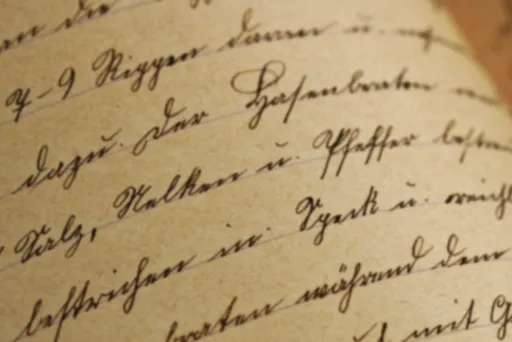 an die
7-9 Rippen daran u.
dazu. Der Hasenbraten
Salz, Nelken u. Pfeffer bestre
bestrichen in Speck u. reichl
braten während dem
mit G